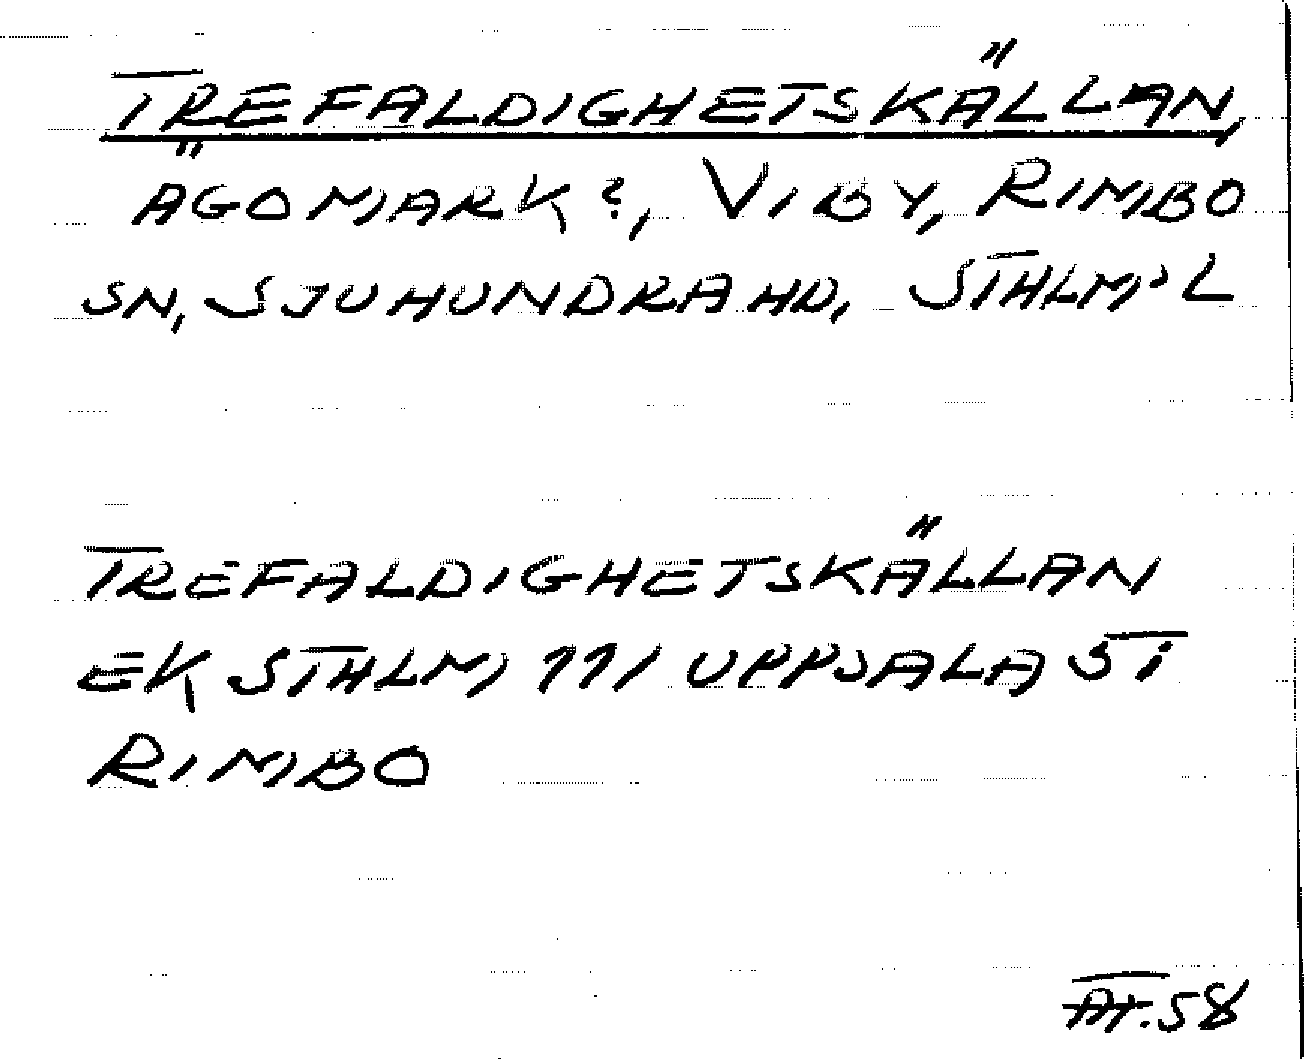 TREFALDIGHETSKÄLLAN,
ÄGOMARK?, VIBY, RIMBO
SN, SJUHUNDRA HD, STHLM'S L
TREFALDIGHETSKÄLLAN
EK STHLM 111 UPPSALA 5T
RIMBO
58